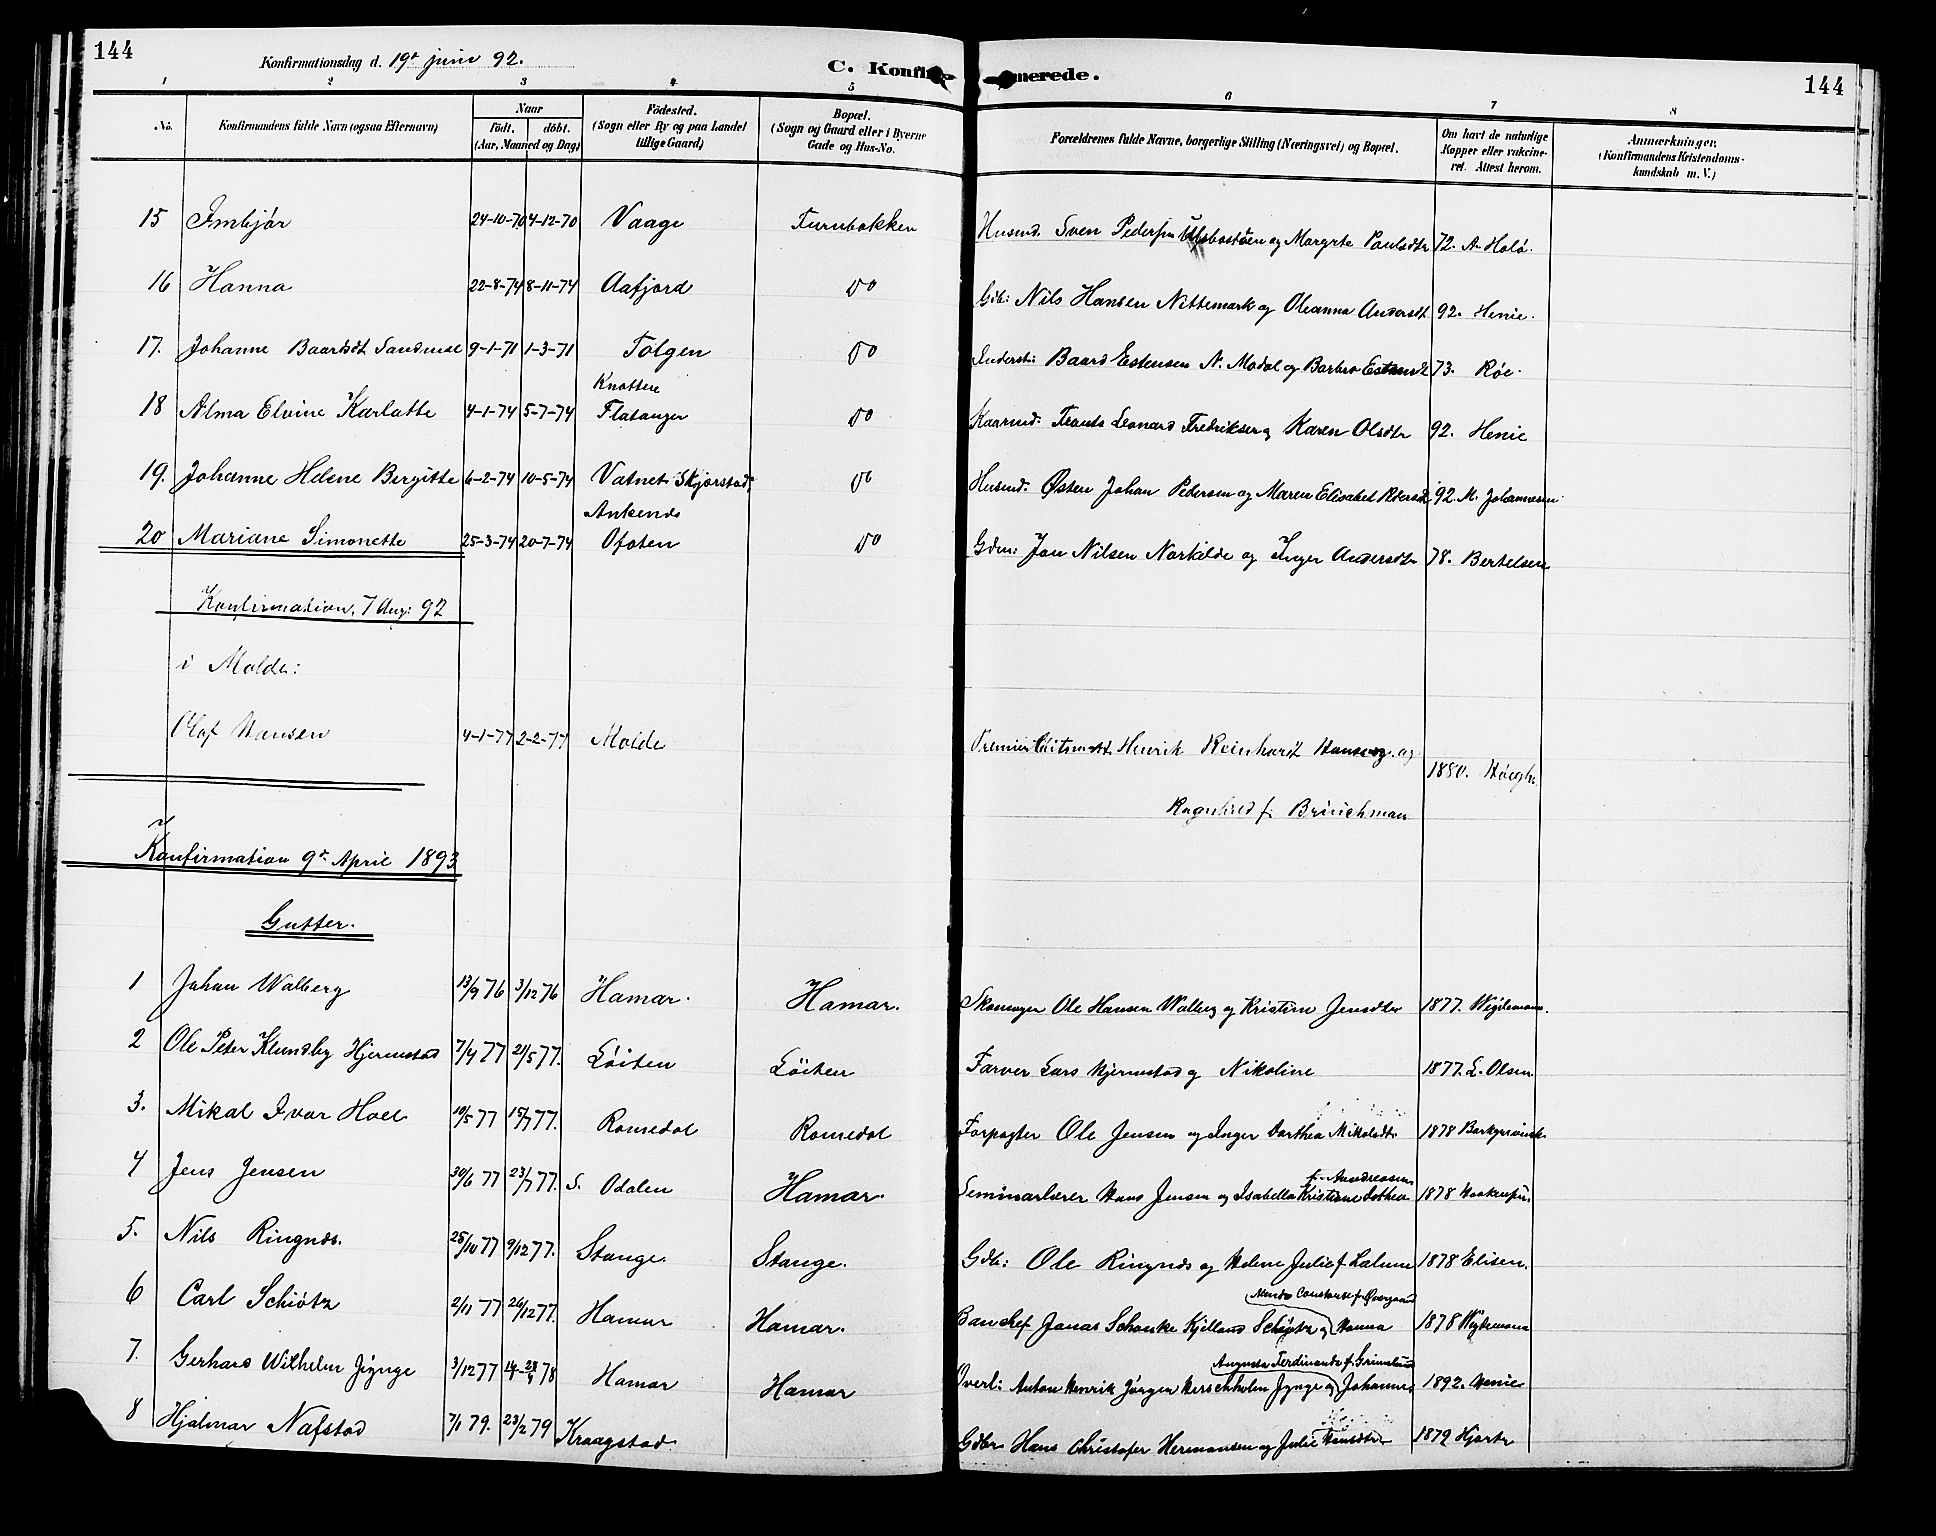 144
Konfirmationsdag d. 19de juni 92.
C. Konfirmerede.
144
1 2 3 4 5 6 7 8
No. Konfirmandens fulde Navn (ogsaa Efternavn) Naar født. døbt. (Aar, Maaned og Dag) Fødested. (Sogn eller By og paa Landet tillige Gaard) Bopæl. (Sogn og Gaard eller i Byerne Gade og Hus-No. Forældrenes fulde Navne, borgerlige Stilling (Næringsvei) og Bopæl. Om havt de naturlige Kopper eller vakcineret. Attest herom. Anmærkninger. (Konfirmandens Kristendomskundskab m. V.)
15 Imbjør 24-10-70 4-12-70 Vaage Furubakken Husmd. Sven Pedersen og Margrte Paulsdtr 72. A. Holø.
16 Hanna 22-8-74 8-11-74 Aafjord Do Gdb: Nils Hansen Nittemark og Oleanna Andersdt 92. Henie.
17. Johanne Baardsdt Sandmæl 9-1-71 1-3-71 Tolgen Do Inderst: Baard Estensen N. Modal og Barbro Estensd 73. Røe.
18 Alma Elvine Karlotte 4-1-74 5-7-74 Knottene Flatanger Do Kaarmd: Leonard Fredriksen og Karen Olsdtr 92. Henie
19. Johanne Helene Bergitte 6-2-74 10-5-74 Vatnet Skjerstad, Do Husmd: Østen Johan Pedersen og Maren Elisabet Pedersd 92. M. Johannesen
20 Mariane Simonette 25-3-74 20-7-74 Ankenes Ofoten Do Gdm: Jon Nilsen Norkilde og Inger Andersdtr 78. Bertelsen
Konfirmation, 7 Aug: 92
i Molde:
Olaf Hansen 4-1-77 2-2-77 Molde Premierløitnant Henrik Reinhardt Hansen og 1880. Høegh.
Ragnhild f. Brüchman
Konfirmation 9de April 1893
Gutter.
1 Johan Walberg 13/9 76 3/12 76 Hamar. Hamar. Skomager Ole Hansen Walberg og Kristine Jensdtr 1877. Wegdemann.
2 Ole Peter Klundby Hjermstad 7/4 77 21/5 77. Löiten Löiten Farver Lars Hjermstad og Nikoline 1877. L. Olsen
3. Mikal Ivar Hoel 10/5 77 15/7 77. Romedal Romedal Forpagter Ole Jensen og Inger Dorthea Mikalsdtr 1878
4 Jens Jensen 30/6 77 23/7 77. S. Odalen Hamar. Seminarlærer Hans Jensen og Isabella Kristiane Dothea f. Andreasen 1878
5. Nils Ringnæs. 25/10 77 9/12 77. Stange. Stange. Gdb: Ole Ringnæs og Helene Julie f. Lalum 1878 Elisen.
6 Carl Schiötz 2/11 77 26/12 77. Hamar Hamar. Banchef Jonas Schanke Kjelland Schiøtz og Hanna Constanse f. Overgaard 1878 Wegdemann
7. Gerhard Wilhelm Jynge 3/12 77 78 Hamar Hamar Overl: Anton Henrik Jörgen Herschholm Jynge og Johanne Augusta Ferdinanda f. Grimelund 1892. Henie
8 Hjalmar Nafstad 7/1 79. 23/2 79 Kraagstad Gdbr Hans Christofer Hermansen og Julie Hansdtr 1879 Hjorth